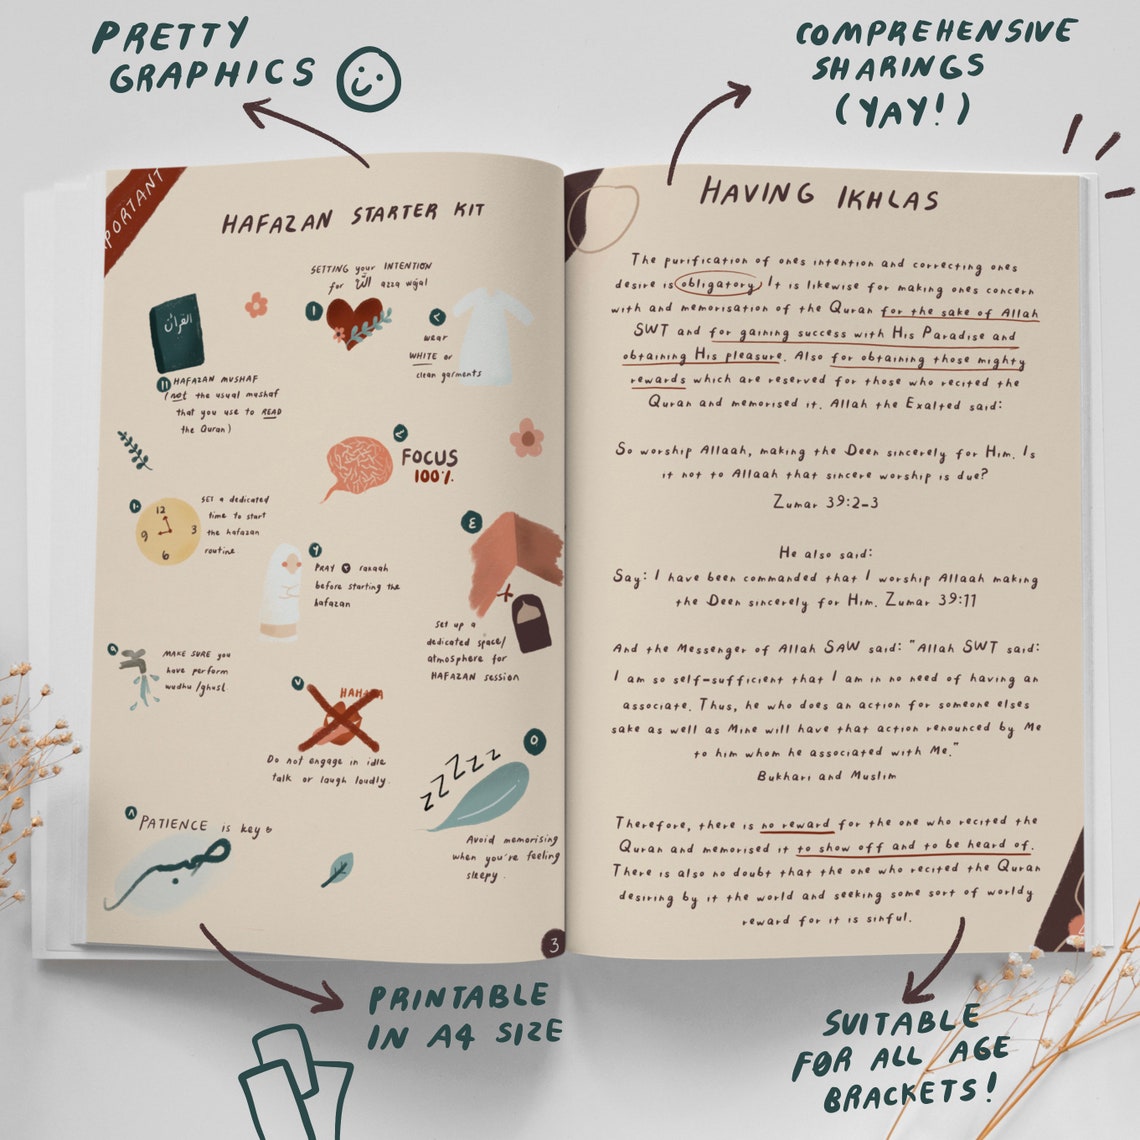 PRETTY
GRAPHICS
COMPREHENSIVE
SHARINGS
(YAY!)
PORTANT
HAFAZAN STARTER KIT
١
SETTING your INTENTION
for الله azza wajal
wear
WHITE or
clean garments
القرآن
١١
HAFAZAN MUSHAF
(not the usual mushaf
that you use to READ
the Quran)
FOCUS
100%
12
3
6
9
SET a dedicated
time to start
the hafazan
routine.
PRAY ٢ rakaah
before starting the
hafazan
٤
set up a
dedicated space/
atmosphere for
HAFAZAN session
٩
MAKE SURE you
have perform
wudhu /ghusl
٧
HAHAHA
Do not engage in idle
talk or laugh loudly.
٥
zZzZzZz
Avoid memorising
when you're feeling
sleepy.
٨
PATIENCE is key
3
HAVING IKHLAS
The purification of ones intention and correcting ones
desire is obligatory. It is likewise for making ones concern
with and memorisation of the Quran for the sake of Allah
SWT and for gaining success with His Paradise and
obtaining His pleasure. Also for obtaining those mighty
rewards which are reserved for those who recited the
Quran and memorised it. Allah the Exalted said:
So worship Allaah, making the Deen sincerely for Him. Is
it not to Allaah that sincere worship is due?
Zumar 39:2-3
He also said:
Say: I have been commanded that I worship Allaah making
the Deen sincerely for Him. Zumar 39:11
And the Messenger of Allah SAW said: "Allah SWT said:
I am so self-sufficient that I am in no need of having an
associate. Thus, he who does an action for someone elses
sake as well as Mine will have that action renounced by Me
to him whom he associated with Me."
Bukhari and Muslim
Therefore, there is no reward for the one who recited the
Quran and memorised it to show off and to be heard of.
There is also no doubt that the one who recited the Quran
desiring by it the world and seeking some sort of worldy
reward for it is sinful.
PRINTABLE
IN A4 SIZE
SUITABLE
FOR ALL AGE
BRACKETS!